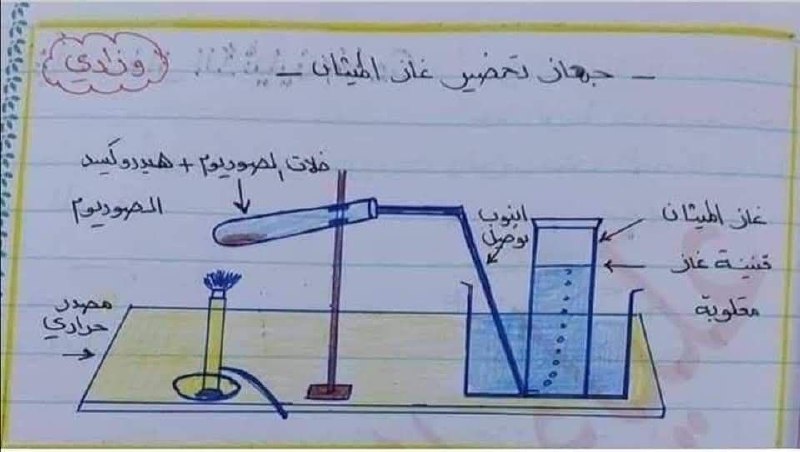 - جهاز تحضير غاز الميثان -
وزاري
خلات الصوديوم + هيدروكسيد
الصوديوم
انبوب
توصيل
غاز الميثان
قنينة غاز
مقلوبة
مصدر
حراري